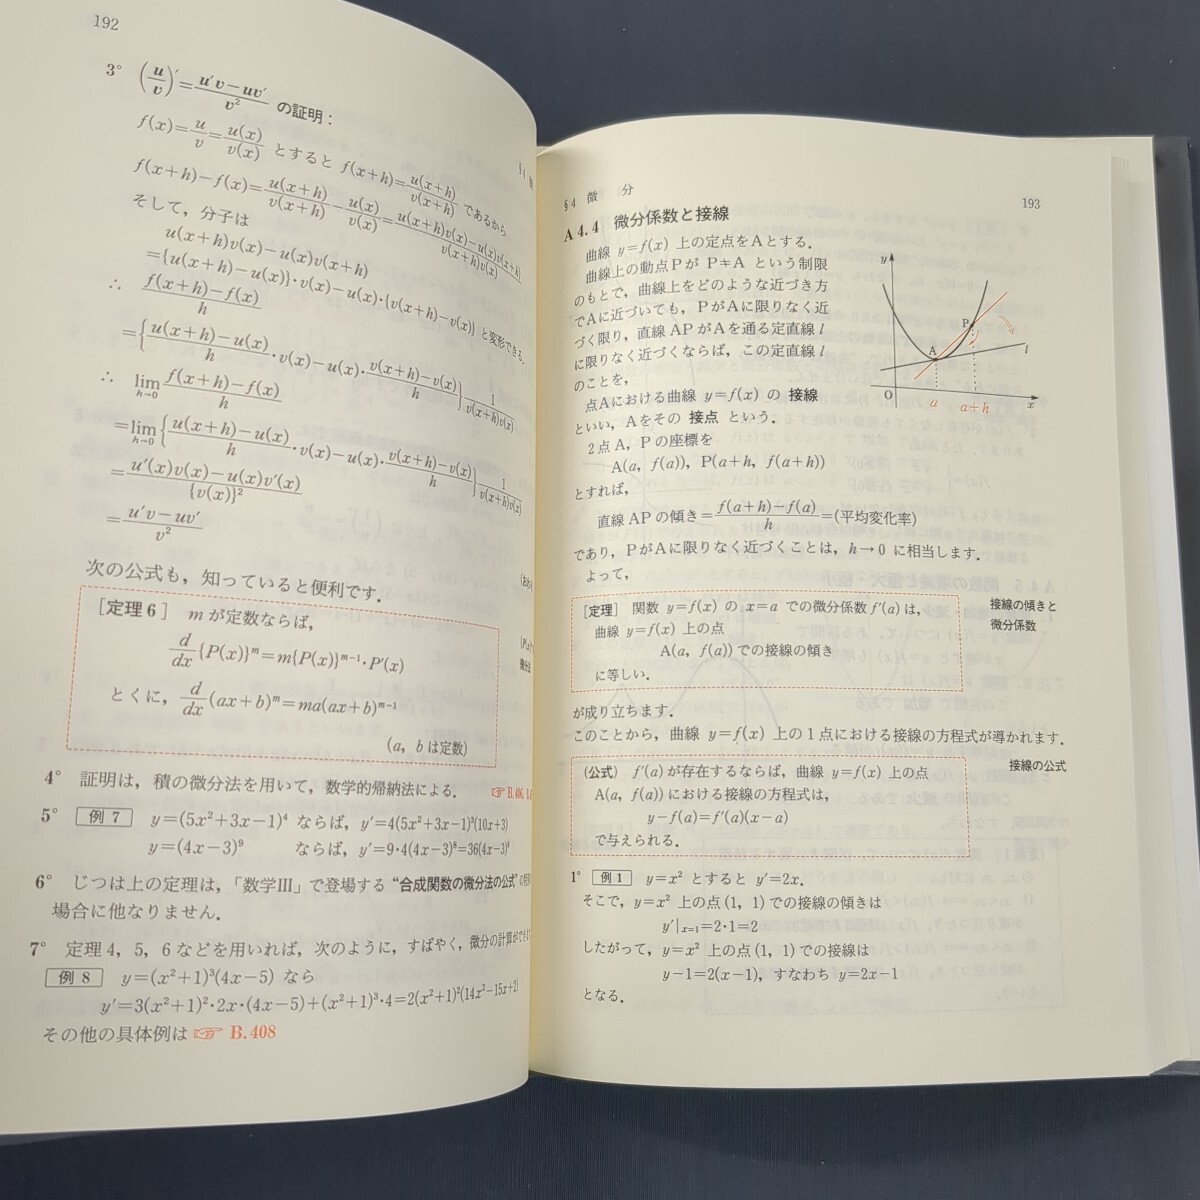 192
3° (u/v)′=(u′v−uv′)/v² の証明：
f(x)=u/v=u(x)/v(x) とすると f(x+h)=u(x+h)/v(x+h) であるから
f(x+h)−f(x)=u(x+h)/v(x+h)−u(x)/v(x)=(u(x+h)v(x)−u(x)v(x+h))/(v(x+h)v(x))
そして，分子は
u(x+h)v(x)−u(x)v(x+h)
={u(x+h)−u(x)}·v(x)−u(x)·{v(x+h)−v(x)} と変形できる．
∴ (f(x+h)−f(x))/h
={(u(x+h)−u(x))/h·v(x)−u(x)·(v(x+h)−v(x))/h}1/(v(x+h)v(x))
∴ lim h→0 (f(x+h)−f(x))/h
=lim h→0 {(u(x+h)−u(x))/h·v(x)−u(x)·(v(x+h)−v(x))/h}1/(v(x+h)v(x))
=(u′(x)v(x)−u(x)v′(x))/{v(x)}²
=(u′v−uv′)/v²
次の公式も，知っていると便利です．
［定理 6］ m が定数ならば，
d/dx{P(x)}ᵐ=m{P(x)}ᵐ⁻¹·P′(x)
とくに，d/dx(ax+b)ᵐ=ma(ax+b)ᵐ⁻¹
(a，b は定数)
4° 証明は，積の微分法を用いて，数学的帰納法による．
5° 例 7 y=(5x²+3x−1)⁴ ならば，y′=4(5x²+3x−1)³(10x+3)
y=(4x−3)⁹ ならば，y′=9·4(4x−3)⁸=36(4x−3)⁸
6° じつは上の定理は，「数学Ⅲ」で登場する “合成関数の微分法の公式”
場合に他なりません．
7° 定理 4，5，6 などを用いれば，次のように，すばやく，微分の計算ができ
例 8 y=(x²+1)³(4x−5) なら
y′=3(x²+1)²·2x·(4x−5)+(x²+1)³·4=2(x²+1)²(14x²−15x+2)
その他の具体例は ☞ B.408
§4 微 分
193
A 4.4 微分係数と接線
曲線 y=f(x) 上の定点をAとする．
曲線上の動点Pが P≠A という制限
のもとで，曲線上をどのような近づき方
でAに近づいても，PがAに限りなく近
づく限り，直線 AP がAを通る定直線 l
に限りなく近づくならば，この定直線 l
のことを，
点Aにおける曲線 y=f(x) の 接線
といい，Aをその 接点 という．
y
P
A
l
O
a
a+h
x
2点A，Pの座標を
A(a, f(a))，P(a+h, f(a+h))
とすれば，
直線 AP の傾き=(f(a+h)−f(a))/h=(平均変化率)
であり，PがAに限りなく近づくことは，h→0 に相当します．
よって，
［定理］ 関数 y=f(x) の x=a での微分係数 f′(a) は，
曲線 y=f(x) 上の点
A(a, f(a)) での接線の傾き
に等しい．
接線の傾きと
微分係数
が成り立ちます．
このことから，曲線 y=f(x) 上の 1 点における接線の方程式が導かれます．
(公式) f′(a) が存在するならば，曲線 y=f(x) 上の点
A(a, f(a)) における接線の方程式は，
y−f(a)=f′(a)(x−a)
で与えられる．
接線の公式
1° 例 1 y=x² とすると y′=2x．
そこで，y=x² 上の点 (1, 1) での接線の傾きは
y′|x=1=2·1=2
したがって，y=x² 上の点 (1, 1) での接線は
y−1=2(x−1)，すなわち y=2x−1
となる．